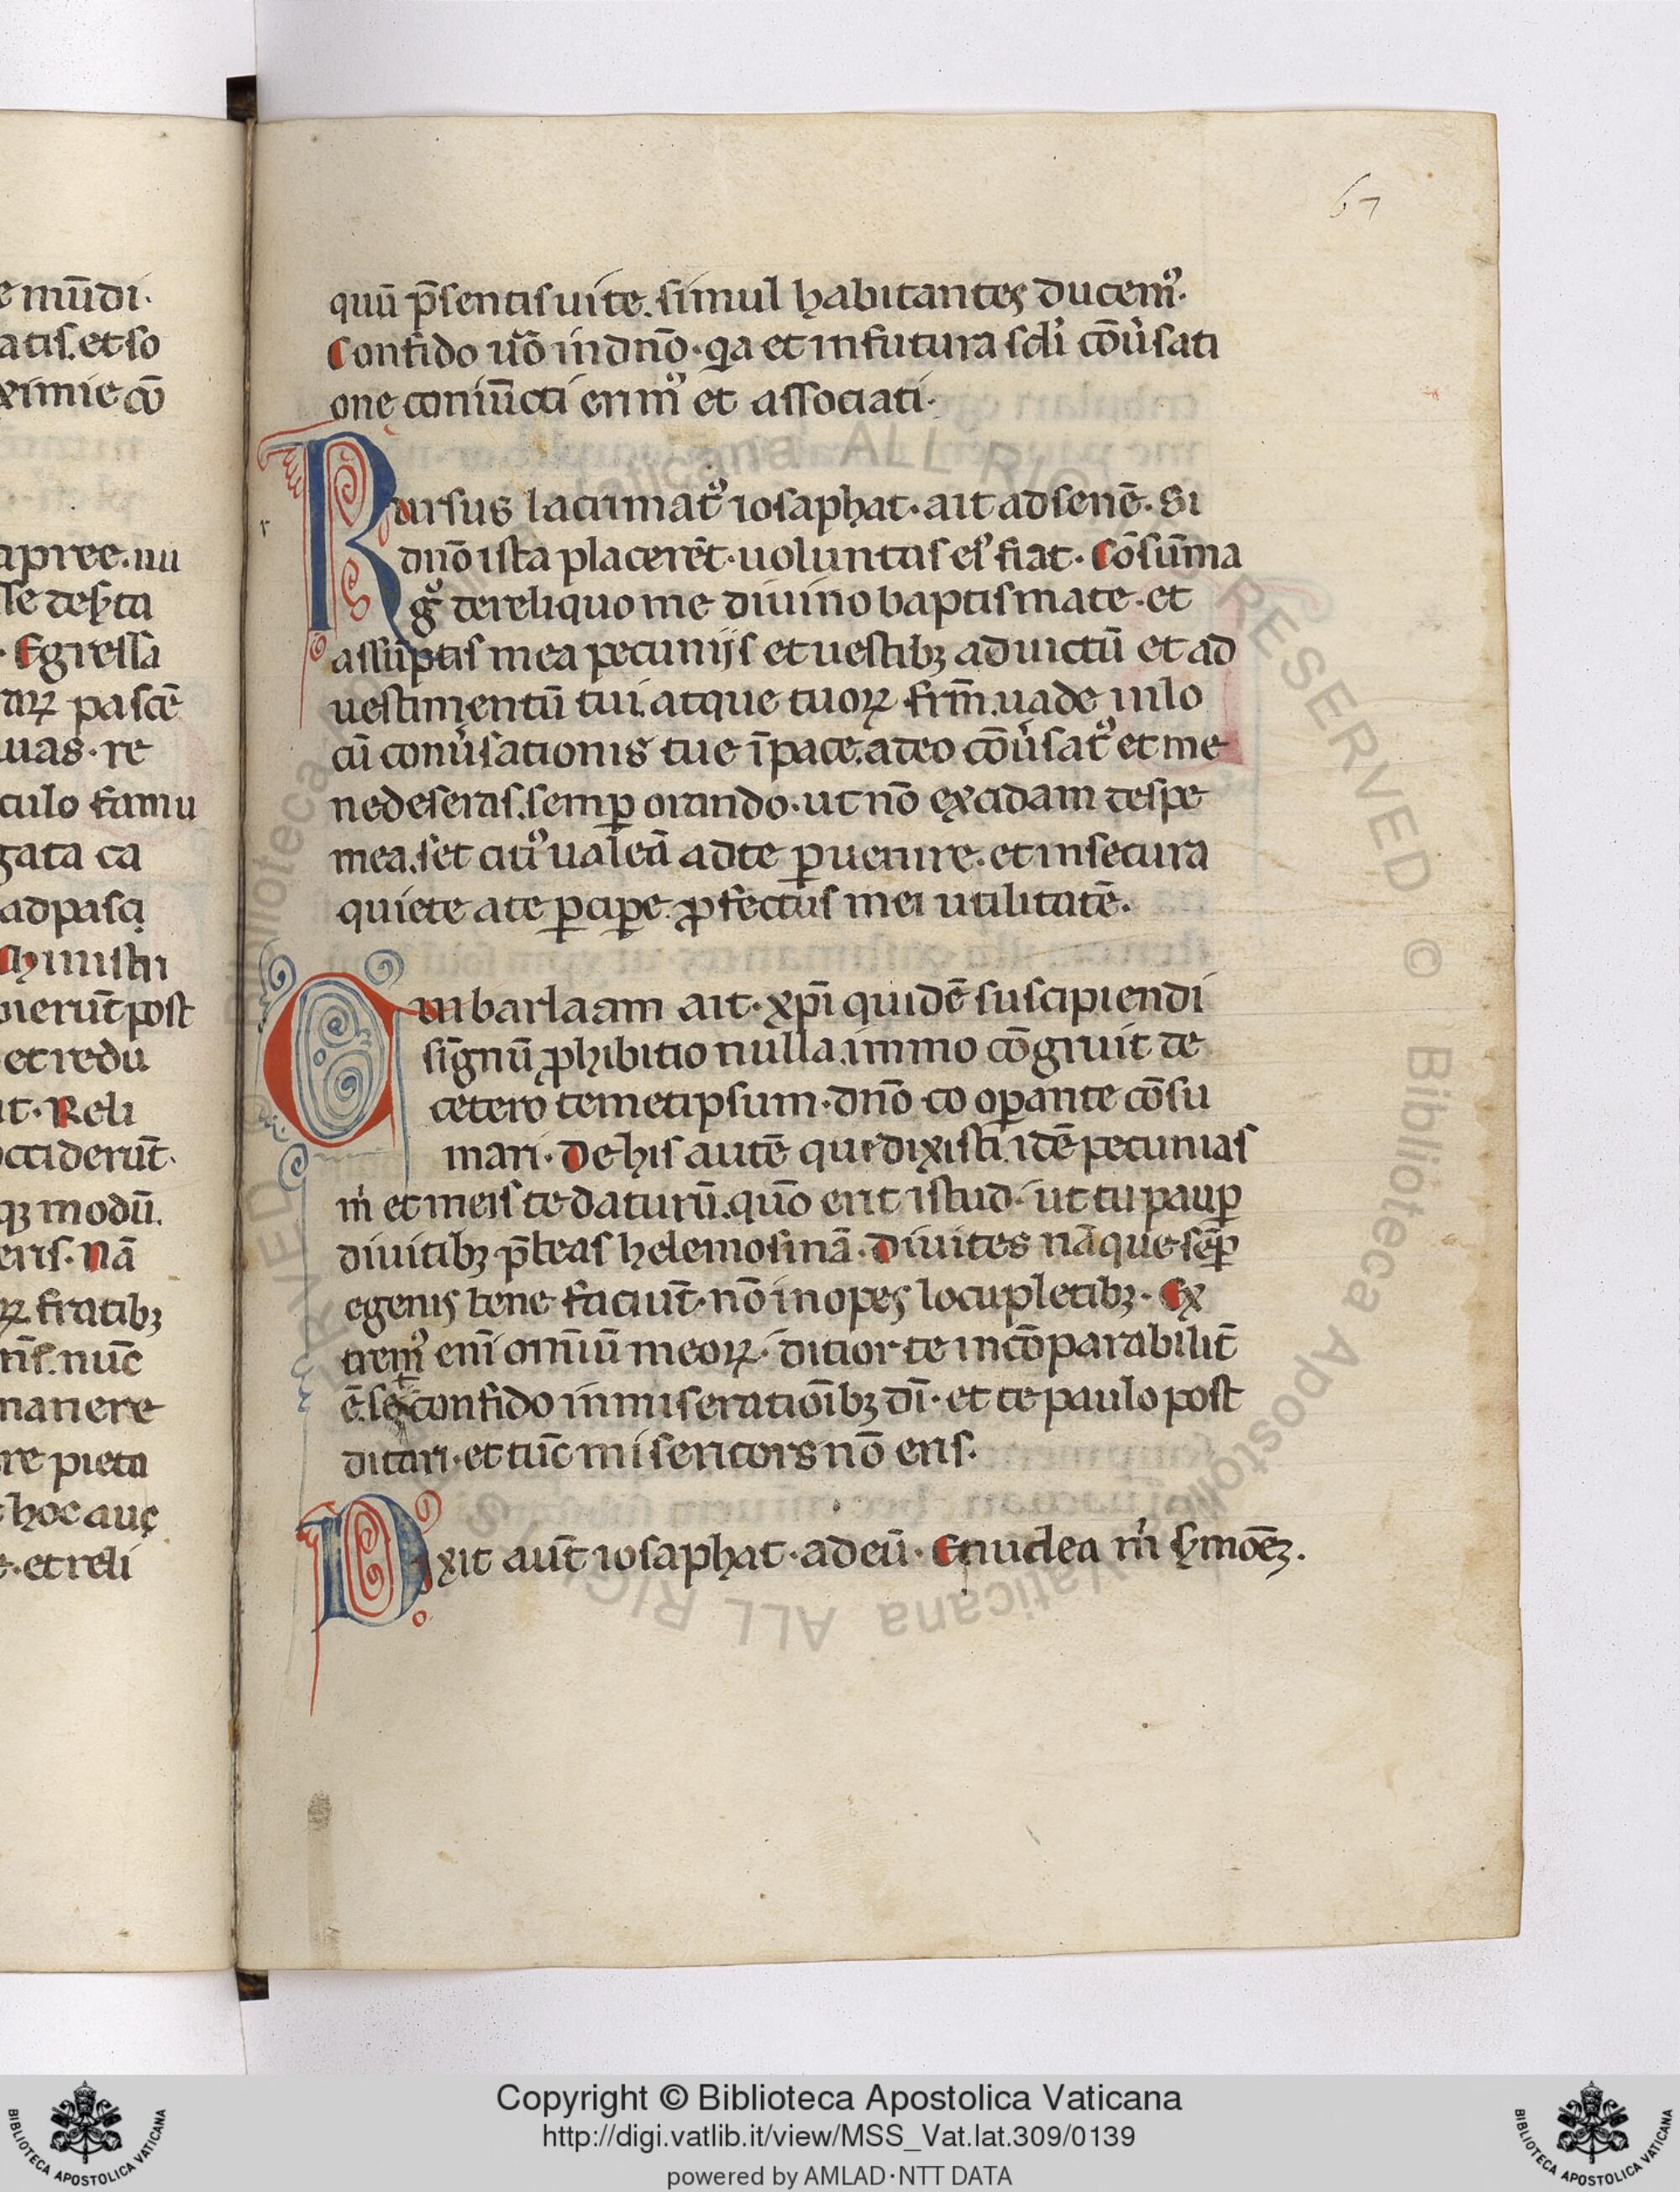 67
quū p̄sentis uite. simul habitantes ducemꝰ.
Confido ůo in dn̄o. qa et in futura scłi cōůsati
one coniūcti erimꝰ et associati.
Rursus lacrimatꝰ iosaphat. ait ad senē. Si
dn̄o ista placerēt. uoluntas eiꝰ fiat. Cōsūma
gͦ de reliquo me diuino baptismate. et
assūptis mea pecunijs et uestibꝫ ad uictū et ad
uestimentū tui. atque tuoꝝ frm̄. uade in lo
cū conůsationis tue ī pace. a deo cōůsatꝰ et me
ne deseras. semꝑ orando. ut nō excidam de spe
mea. set citiꝰ ualeā ad te ꝑuenire. et in secura
quiete a te ꝑciꝑe. ꝓfectus mei utilitatē.
Cui barlaam ait. xp̄i quidē suscipiendi
signū ꝓhibitio nulla. immo cōgruit de
cetero temetipsum. dn̄o cooꝑante cōsu
mari. De his autē que dixisti. idē pecunias
m̍ et meis te daturū. quō erit istud. ut tu pauꝑ
diuitibꝫ p̄beas helemosinā. Diuites nāque sēꝑ
egenis bene faciūt. nō inopes locupletibꝫ. Ex
tremꝰ eni̅ omīū meoꝝ. ditior te incōparabilit̄
ē. set confido in miserationībꝫ dī. et te paulo post
ditari. et tūc misericors nō eris.
Dixit aūt iosaphat. ad eū. Enuclea m̍ ẏmōēꝫ.
e mūdi.
atis. et so
ximie cō
r
se dexta
. Egressa
pascē
uas. re
culo famu
gata ca
ad pasci
ministri
ierūt post
et redu
it. Reli
cciderūt.
modū.
eris. Nā
fratibꝫ
nūc
manere
re pieta
hoc auc
. et reli
Copyright © Biblioteca Apostolica Vaticana
http://digi.vatlib.it/view/MSS_Vat.lat.309/0139
powered by AMLAD·NTT DATA
BIBLIOTECA APOSTOLICA VATICANA
BIBLIOTECA APOSTOLICA VATICANA